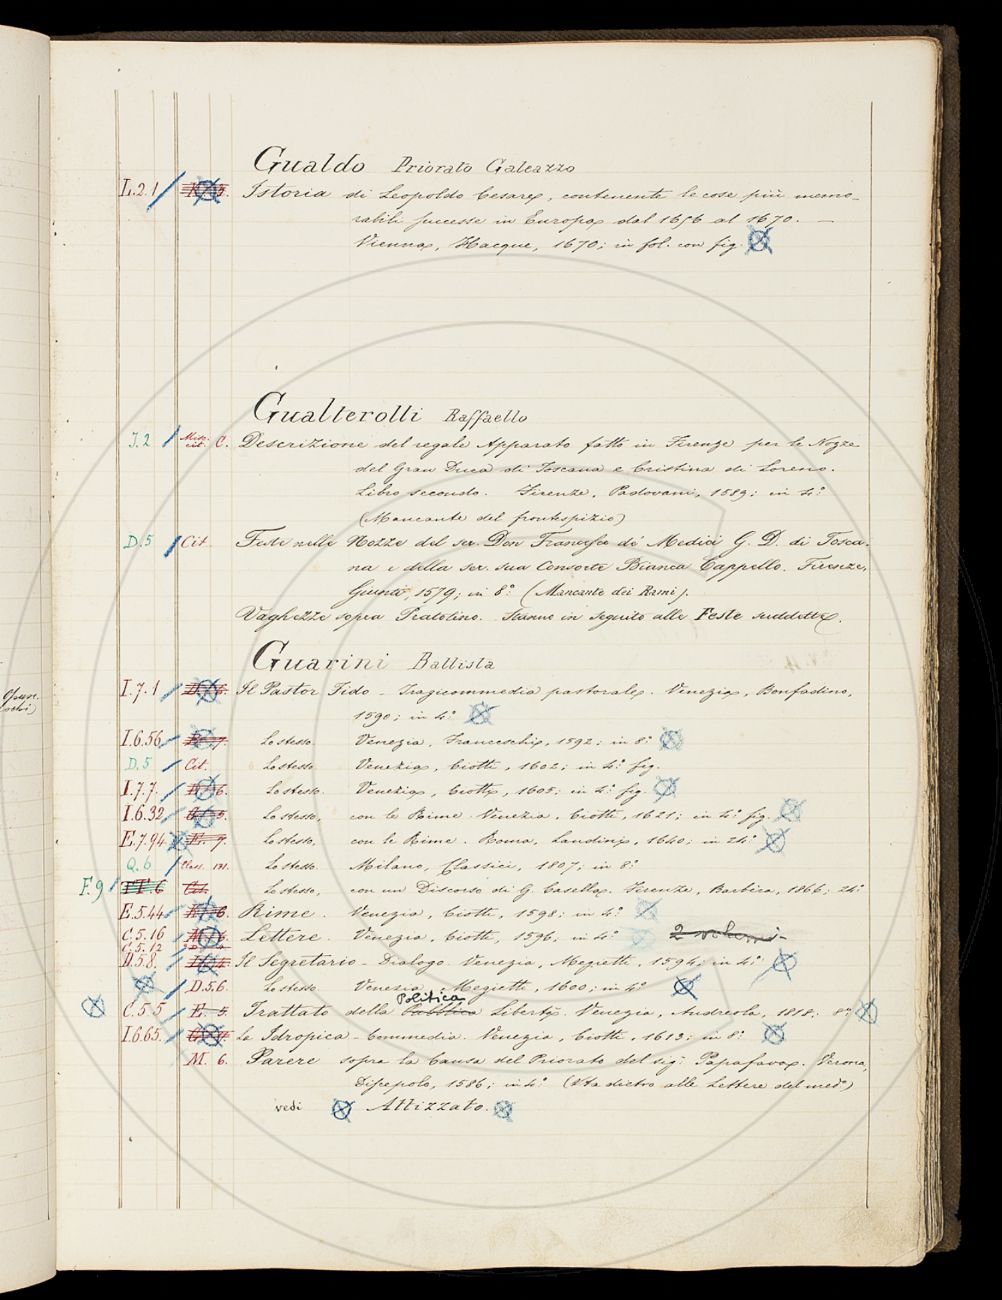 Gualdo Priorato Galeazzo
L.2.1 Istoria di Leopoldo Cesare, contenente le cose più memo-
rabili successe in Europa dal 1656 al 1670. —
Vienna, Hacque, 1670; in fol. con fig.
Gualterotti Raffaello
J.2 Misc. cit. C. Descrizione del regale Apparato fatto in Firenze per le Nozze
del Gran Duca di Toscana e Cristina di Loreno.
Libro secondo. Firenze, Padovani, 1589; in 4.º
(Mancante del frontespizio)
D.5 Cit. Feste nelle Nozze del ser. Don Francesco de' Medici G. D. di Tosca-
na e della ser. sua Consorte Bianca Cappello. Firenze,
Giunti, 1579; in 8.º (Mancante dei Rami).
Vaghezze sopra Pratolino. Stanno in seguito alle Feste suddette.
Guarini Battista
I.7.1 Il Pastor Fido – Tragicommedia pastorale. Venezia, Bonfadino,
1590; in 4.º
I.6.56 Lo stesso. Venezia, Franceschi, 1592; in 8.º
D.5 Cit. Lo stesso. Venezia, Ciotti, 1602; in 4.º fig.
I.7.7. 6. Lo stesso. Venezia, Ciotti, 1605; in 4.º fig.
I.6.32 5. Lo stesso, con le Rime. Venezia, Ciotti, 1621; in 4.º fig.
E.7.94 E. 7. Lo stesso, con le Rime. Roma, Landini, 1640; in 24.º
Q.6 Class. 131. Lo stesso. Milano, Classici, 1807; in 8.º
F.9 Cit. Lo stesso, con un Discorso di G. Casella. Firenze, Barbèra, 1866; 24.º
E.5.44 6. Rime. Venezia, Ciotti, 1598; in 4.º
C.5.16 M. 6. Lettere. Venezia, Ciotti, 1596; in 4.º 2 volumi
C.5.12
D.5.8. Il Segretario – Dialogo. Venezia, Megietti, 1594; in 4.º
D.5.6. Lo stesso. Venezia, Megietti, 1600; in 4.º
Politica
C.5.5 E. 5. Trattato della Pubblica Libertà. Venezia, Andreola, 1818; 8.º
I.6.65. La Idropica – Commedia. Venezia, Ciotti, 1613; in 8.º
M. 6. Parere sopra la Causa del Priorato del sig. Papafava. Verona,
Discepolo, 1586; in 4.º (Sta dietro alle Lettere del med.º)
vedi Attizzato.